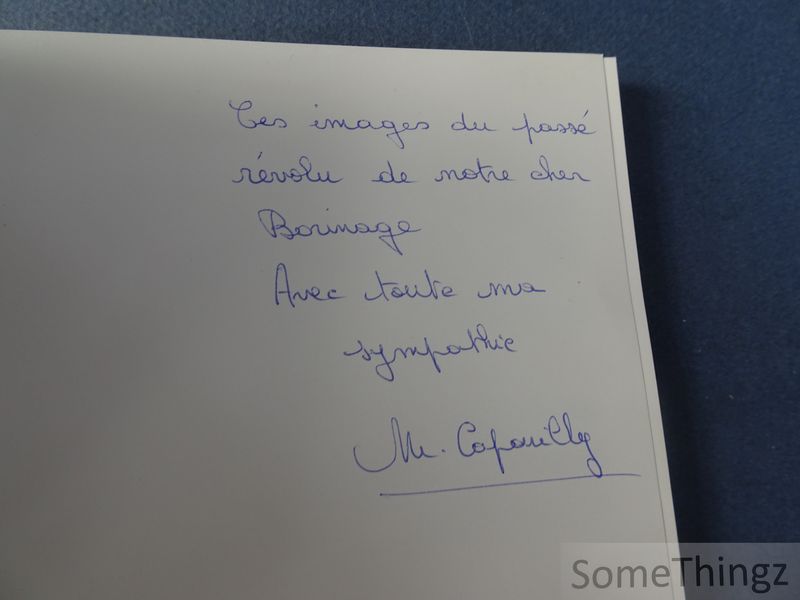 Ces images du passé
révolu de notre cher
Borinage
Avec toute ma
sympathie
M. Capouilly
SomeThingz